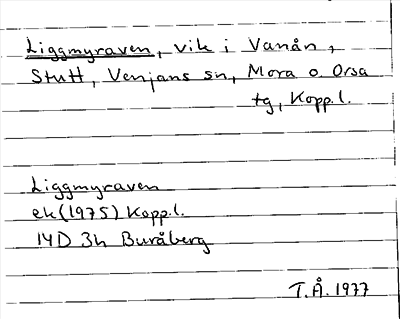 Liggmyraven, vik i Vanån,
Stutt, Venjans sn, Mora o. Orsa
tg, Kopp.l.
Liggmyraven
ek(1975) Kopp.l.
14D 3h Buråberg
T.Å. 1977